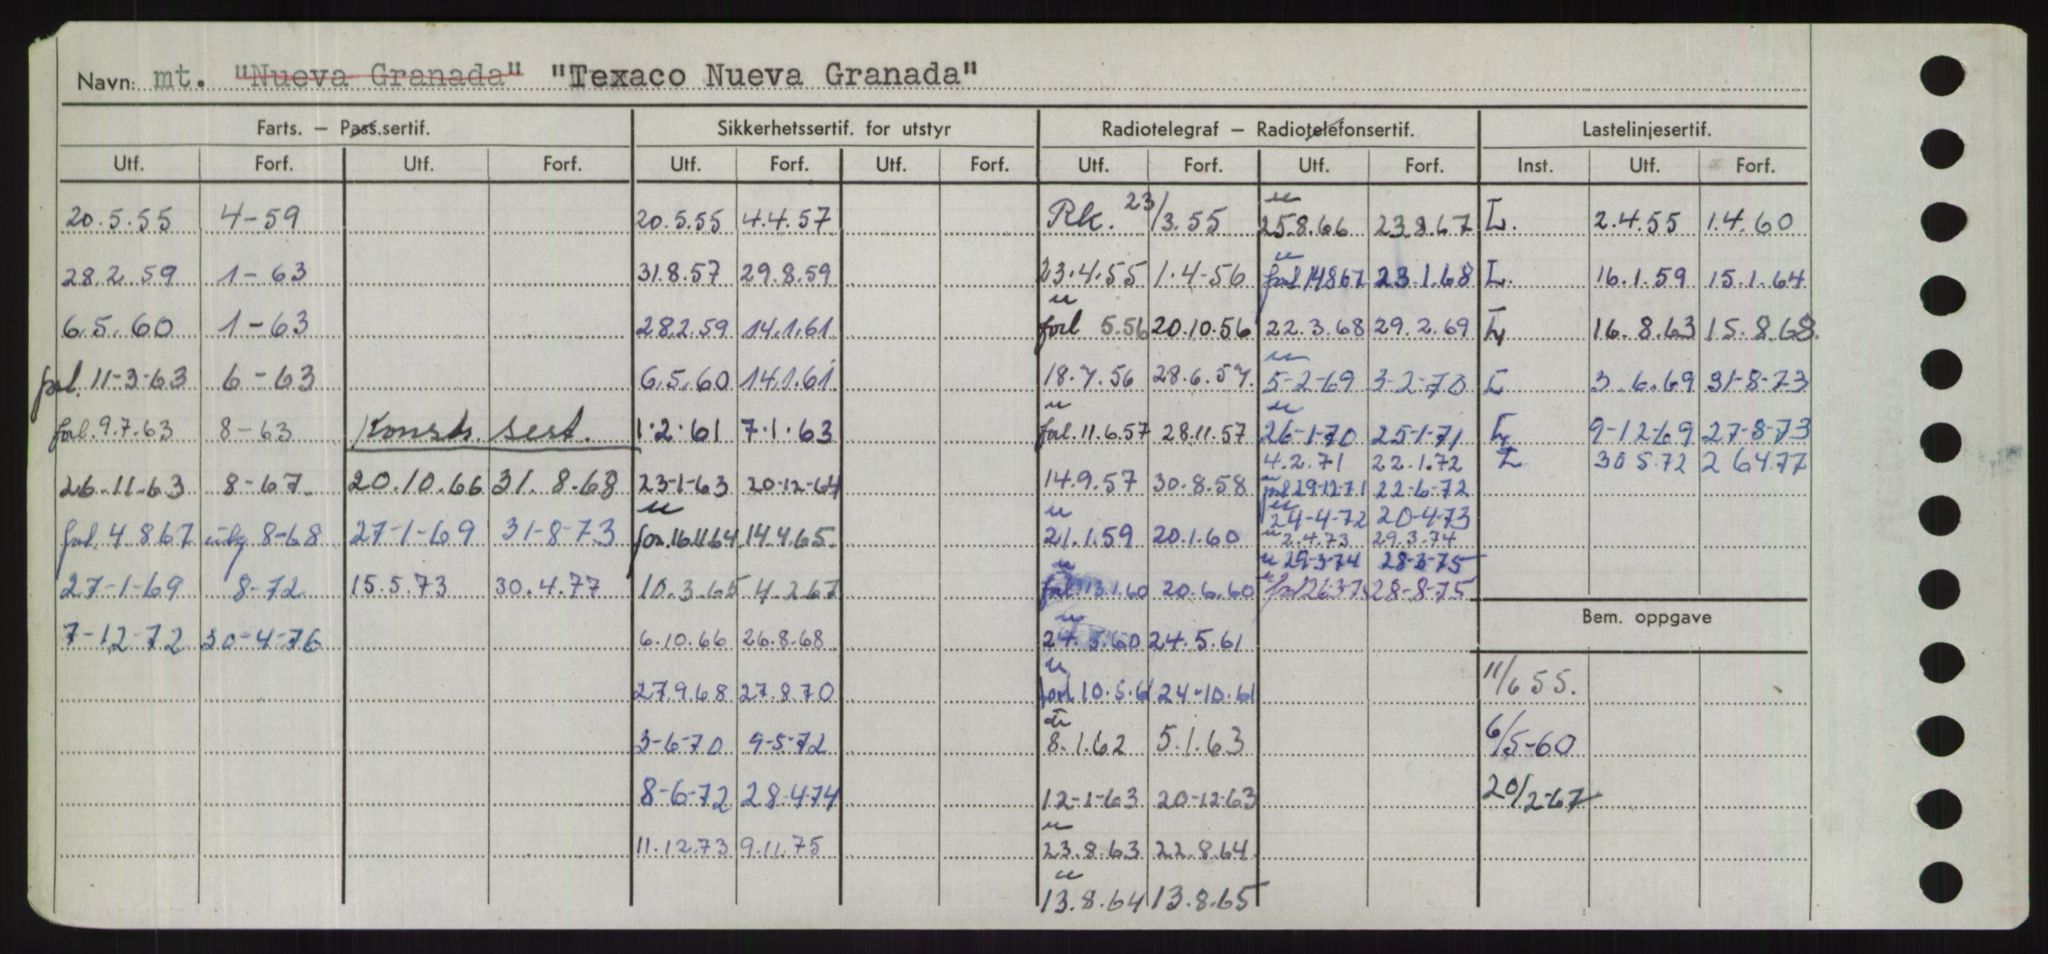 Navn: mt. "Nueva Granada" "Texaco Nueva Granada"
Farts. – Pass.sertif. Sikkerhetssertif. for utstyr Radiotelegraf – Radiotelefonsertif. Lastelinjesertif.
Utf. Forf. Utf. Forf. Utf. Forf. Utf. Forf. Utf. Forf. Utf. Forf. Inst. Utf. Forf.
20.5.55 4-59 20.5.55 4.4.57 Rk. 23/3.55 u 25.8.66 23.8.67 L. 2.4.55 1.4.60
28.2.59 1-63 31.8.57 29.8.59 23.4.55 1.4-56 u forl 14867 23.1.68 L. 16.1.59 15.1.64
6.5.60 1-63 28.2.59 14.1.61 u forl 5.56 20.10.56 22.3.68 29.2.69 L 16.8.63 15.8.68.
forl. 11-3-63 6-63 6.5.60 14.1.61 18.7.56 28.6.57. u 5-2-69 3-2-70 L 3.6.69 31-8-73
forl. 9.7.63 8-63 Konstr. sert. 1.2.61 7.1.63 u forl. 11.6.57 28.11.57 u 26-1-70 25-1-71 L 9-12-69 27-8-73
4.2.71 22.1.72 L 30 5.72 2 6477
26.11.63 8-67. 20.10.66 31.8.68 23-1-63 20-12-64 14.9.57 30.8.58 u forl 29-12-71 22-6-72
u 24-4-72 20-4-73
forl. 4.867 8-68 27-1-69 31-8-73 u for. 161164 14.4.65. u 21.1.59 20.1.60 u 2.4.73 29.3.74
u 29-3-74 28-2-75
27-1-69 8-72 15.5.73 30.4.77 10.3.65 4.2.67 u forl. 13.1.60 20.6.60 u forl 26-3-75 28-8-75
7-12-72 30-4-76 6.10.66 26.8.68 u 24.5.60 24.5.61 Bem. oppgave
27.9.68 27.8.70 u forl. 10.5.61 24-10.61 11/6 55.
3-6-70 9-5-72 u 8.1.62 5.1.63 6/5-60
8-6-72 28-474 12-1-63 20-12-63 20/2-67
11.12.73 9.11.75 u 23.8.63 22.8.64
u 13.8.64 13.8.65